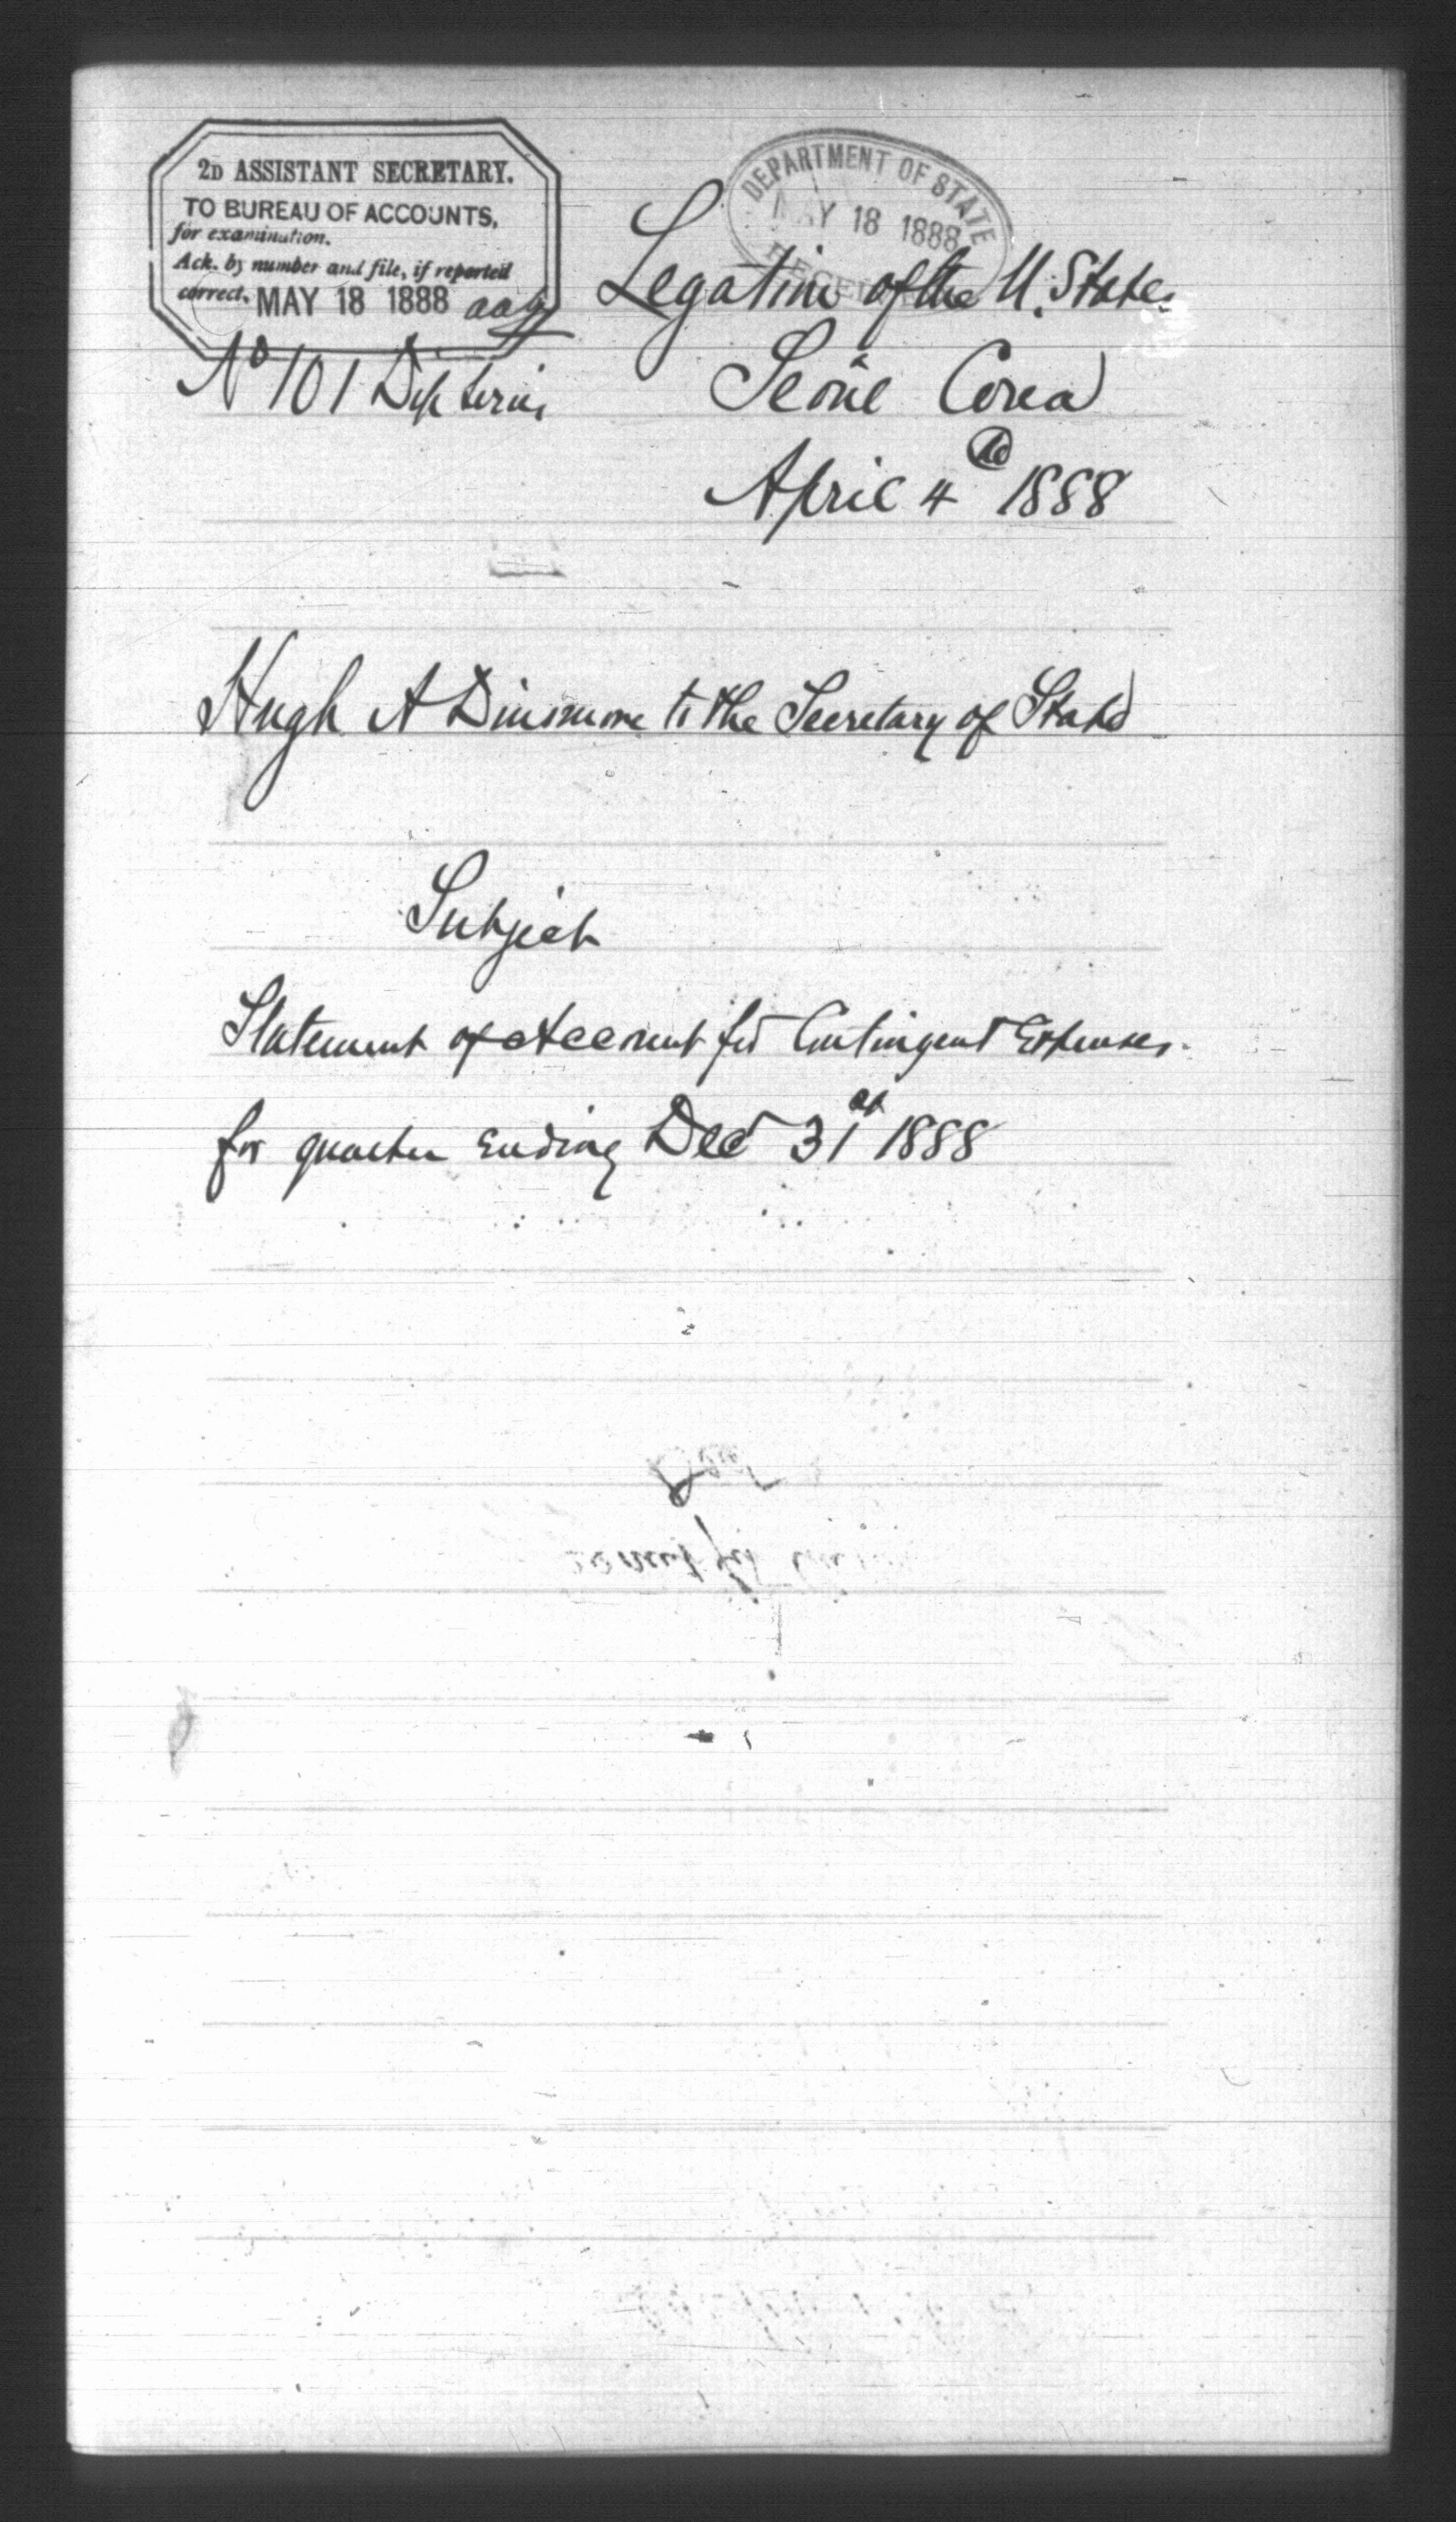 2D ASSISTANT SECRETARY.
TO BUREAU OF ACCOUNTS,
for examination.
Ack. by number and file, if reported
correct. MAY 18 1888 aaa
DEPARTMENT OF STATE
MAY 18 1888
RECEIVED
Legation of the U. States
Seoul Corea
No 101 Dip Series
April 4th 1888
Hugh A Dinsmore to the Secretary of State
Subject
Statement of Account for Contingent Expenses.
for quarter ending Dec 31st 1888